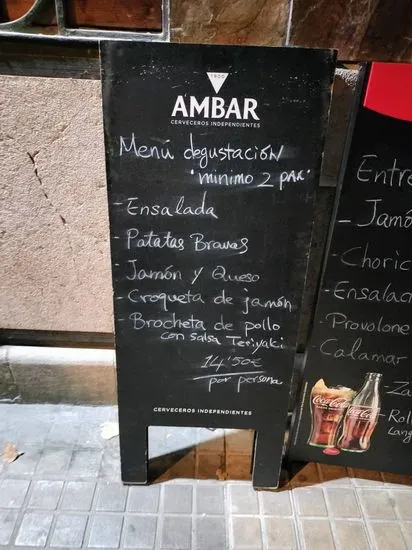 1900
AMBAR
CERVECEROS INDEPENDIENTES
Menú degustación
"minimo 2 pax"
- Ensalada
- Patatas Bravas
- Jamón y Queso
- Croqueta de jamón
- Brocheta de pollo
con salsa Teriyaki
14'50€
por persona
CERVECEROS INDEPENDIENTES
Entre
- Jamó
- Choric
- Ensalac
- Provolone
Calamar
- Za
- Roll
Lang
Coca-Cola
Coca-Cola